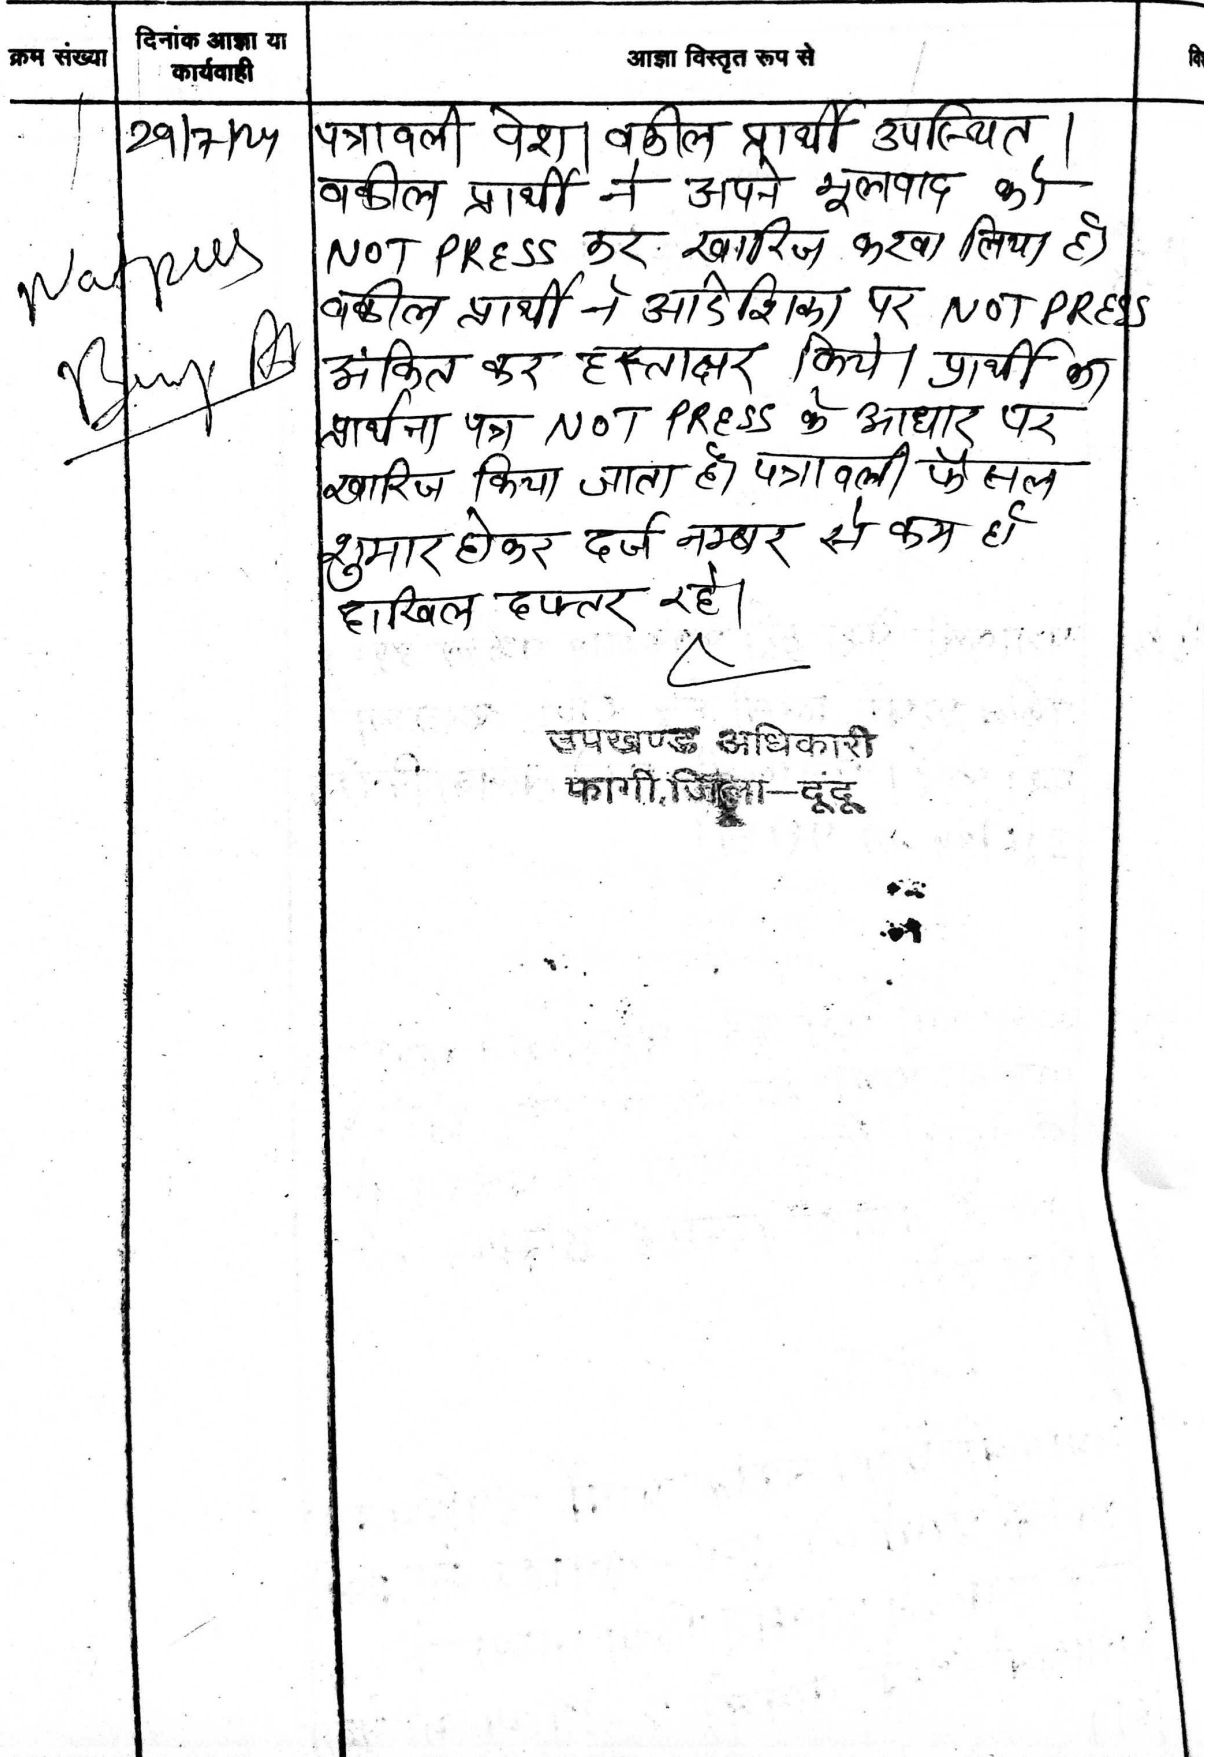 क्रम संख्या
दिनांक आज्ञा या
कार्यवाही
आज्ञा विस्तृत रूप से
पत्रावली पेश। वकील प्रार्थी उपस्थित।
वकील प्रार्थी ने अपने मूलवाद को
NOT PRESS कर खारिज करवा लिया है।
वकील प्रार्थी ने आदेशिका पर NOT PRESS
अंकित कर हस्ताक्षर किये। प्रार्थी का
प्रार्थना पत्र NOT PRESS के आधार पर
खारिज किया जाता है। पत्रावली फैसल
शुमार होकर दर्ज नम्बर से कम हो
दाखिल दफ्तर रहे।
Not press
उपखण्ड अधिकारी
फागी, जिला-दूदू